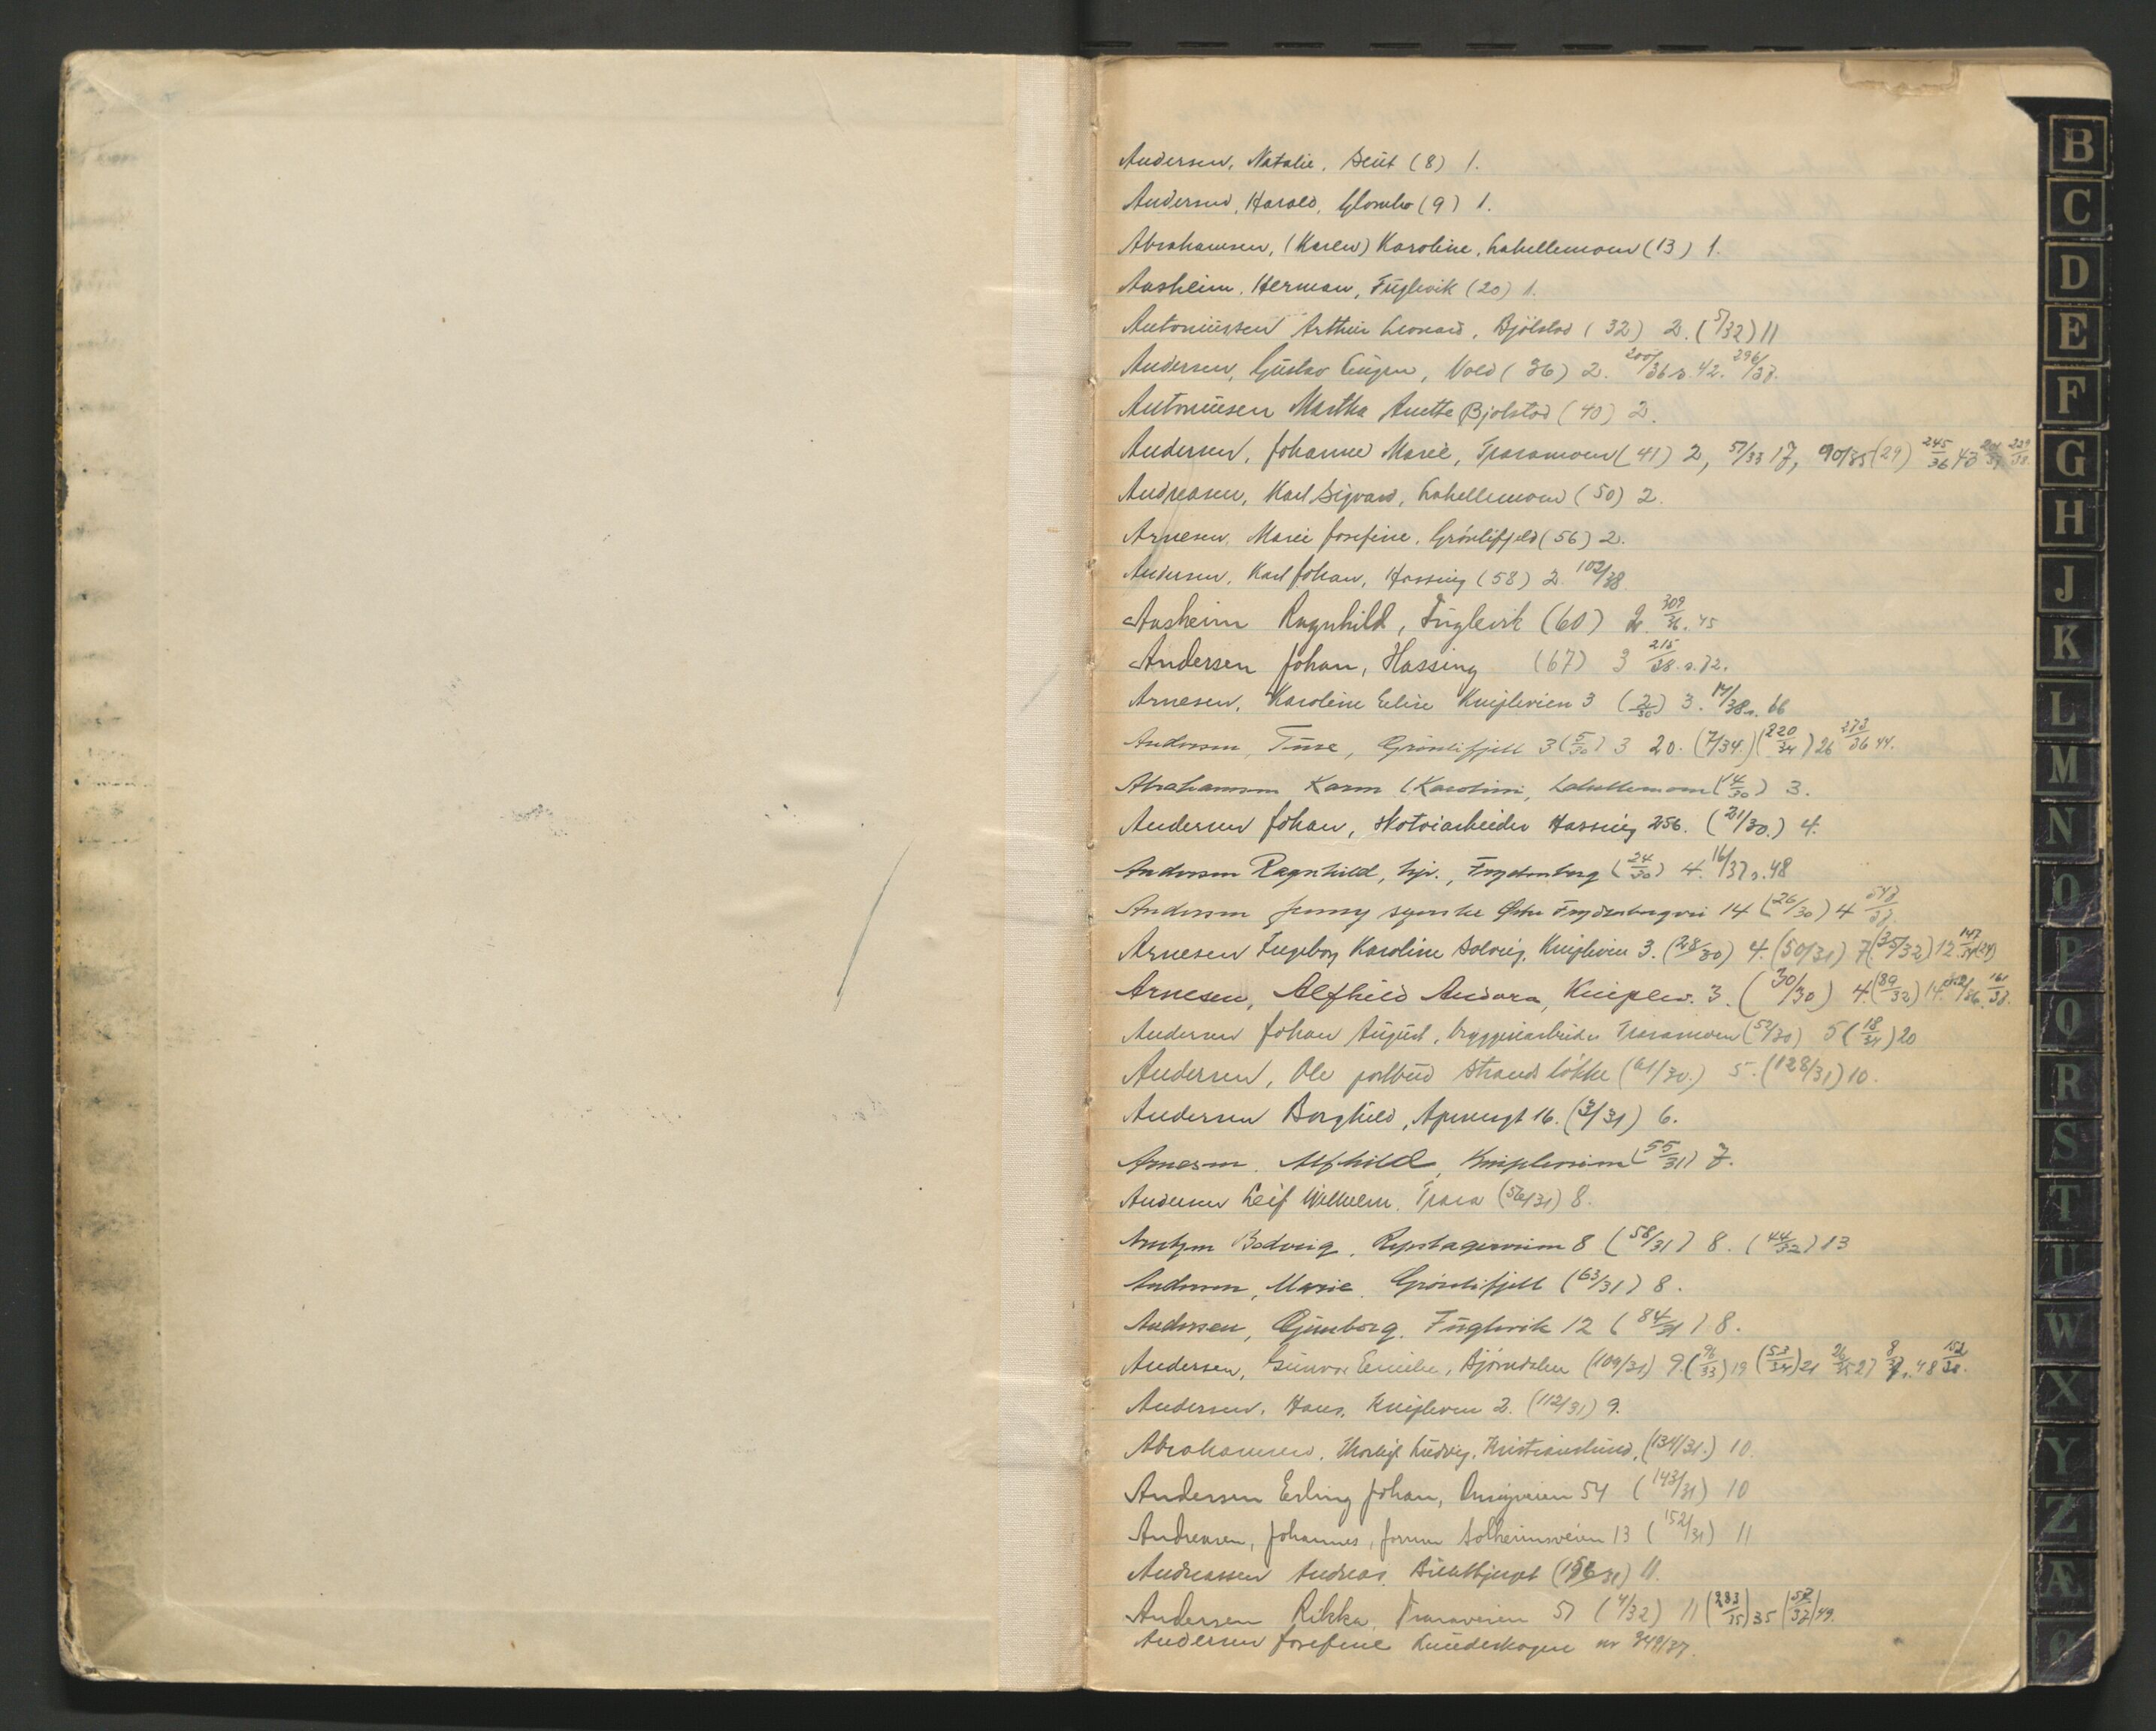 Andersen, Natalie, Slüt (8) 1.
Andersen, Harald, Glombo (9) 1.
Abrahamsen, (Karen) Karoline, Lahellemoen (13) 1.
Aasheim, Herman, Füglevik (20) 1.
Antoniussen Arthur Leonard, Bjølstad (32) 2. (5/32) 11
Andersen, Güstav Eugen, Vold (36) 2. 200/36 s. 42. 296/37.
Antoniüsen Martha Anette Bjølstad (40) 2.
Andersen, Johanne Marie, Traramoen (41) 2, 57/33 17, 90/35 (29) 245/36 43 239/38
Andreasen, Karl Sigvard, Lahellemoen (50) 2.
Arnesen, Marie Josefine, Grønlifjeld (56) 2.
Andersen, Karl Johan, Hassing (58) 2. 102/38.
Aasheim Ragnhild, Füglevik (60) 2. 309/36. 45
Andersen Johan, Hassing (67) 3 215/38 s. 72.
Arnesen, Karoline Elise Kniplevien 3 (2/30) 3. 14/38 s. 66
Andersen, Tüse, Grønlifjell 3 (5/30) 3 20. (7/34.) (220/34) 26 273/36 44.
Abrahamsen Karen (Karoline, Lahellemoen (14/30) 3.
Andersen Johan, skotøiarbeider Hassing 256. (21/30.) 4.
Andersen Ragnhild, hjv., Frydenberg (24/30) 4. 16/37 s. 48
Andersen Jenny syerske Østre Frydenbergvei 14 (26/30) 4
Arnesen Ingeborg Karoline Solveig, Kniplevien 3. (28/30) 4. (50/31) 7 (35/32) 12 147/34 (24)
Arnesen, Alfhild Andora, Kniplev. 3. (30/30) 4. (89/32) 14. 161/38.
Andersen Johan August, bryggeriarbeider Traramoen (52/30) 5 (18/34) 20
Andersen, Ole postbud Strandløkke (61/30.) 5. (128/31) 10.
Andersen Borghild, Apenesgt 16. (3/31) 6.
Arnesen, Alfhild, Kniplevien (55/31) 7.
Andersen Leif Wilhelm, Trara (56/31) 8.
Arntzen Bodveig, Repslagerveien 8 (58/31) 8. (44/32) 13
Andersen, Marie, Grønlifjell (63/31) 8.
Andersen, Gunborg, Füglevik 12 (84/31) 8.
Andersen, Günvor Emilie, Bjørndalen (109/31) 9. (96/33) 19 (53/34) 21 26/35 27 8/37 s. 48 152/38.
Andersen, Hans, Knipleven 2. (112/31) 9.
Abrahamsen, Thorleif Ludvig, Kristianslund, (134/31.) 10.
Andersen Erling Johan, Onsøyveien 54 (143/31) 10
Andreasen, Johannes, former Solheimsveien 13 (152/31) 11
Andreassen Andreas, (156/31) 11.
Andersen Rikka, Traraveien 51 (4/32) 11 (283/35) 35 (57/37) 49.
Andersen Josefine Lundeskogen nr 349/37.
B
C
D
E
F
G
H
J
K
L
M
N
O
P
Q
R
S
T
U
W
X
Y
Z
Æ
Ø